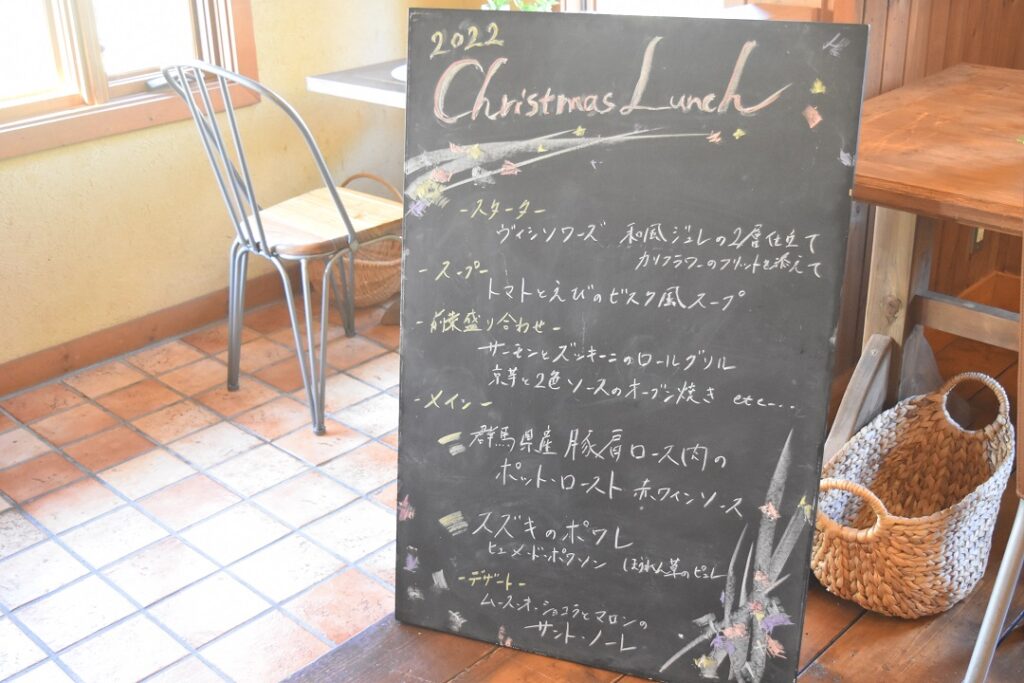 2022
Christmas Lunch
-スターター-
ヴィシソワーズ 和風ジュレの2層仕立て
カリフラワーのフリットを添えて
-スープ-
トマトとえびのビスク風スープ
-前菜盛り合わせ-
サーモンとズッキーニのロールグリル
京芋と2色ソースのオーブン焼き etc....
-メイン-
群馬県産 豚肩ロース肉の
ポット・ロースト 赤ワインソース
スズキのポワレ
ヒュメ・ド・ポワソン ほうれん草のピュレ
-デザート-
ムース・オ・ショコラとマロンの
サント・ノーレ